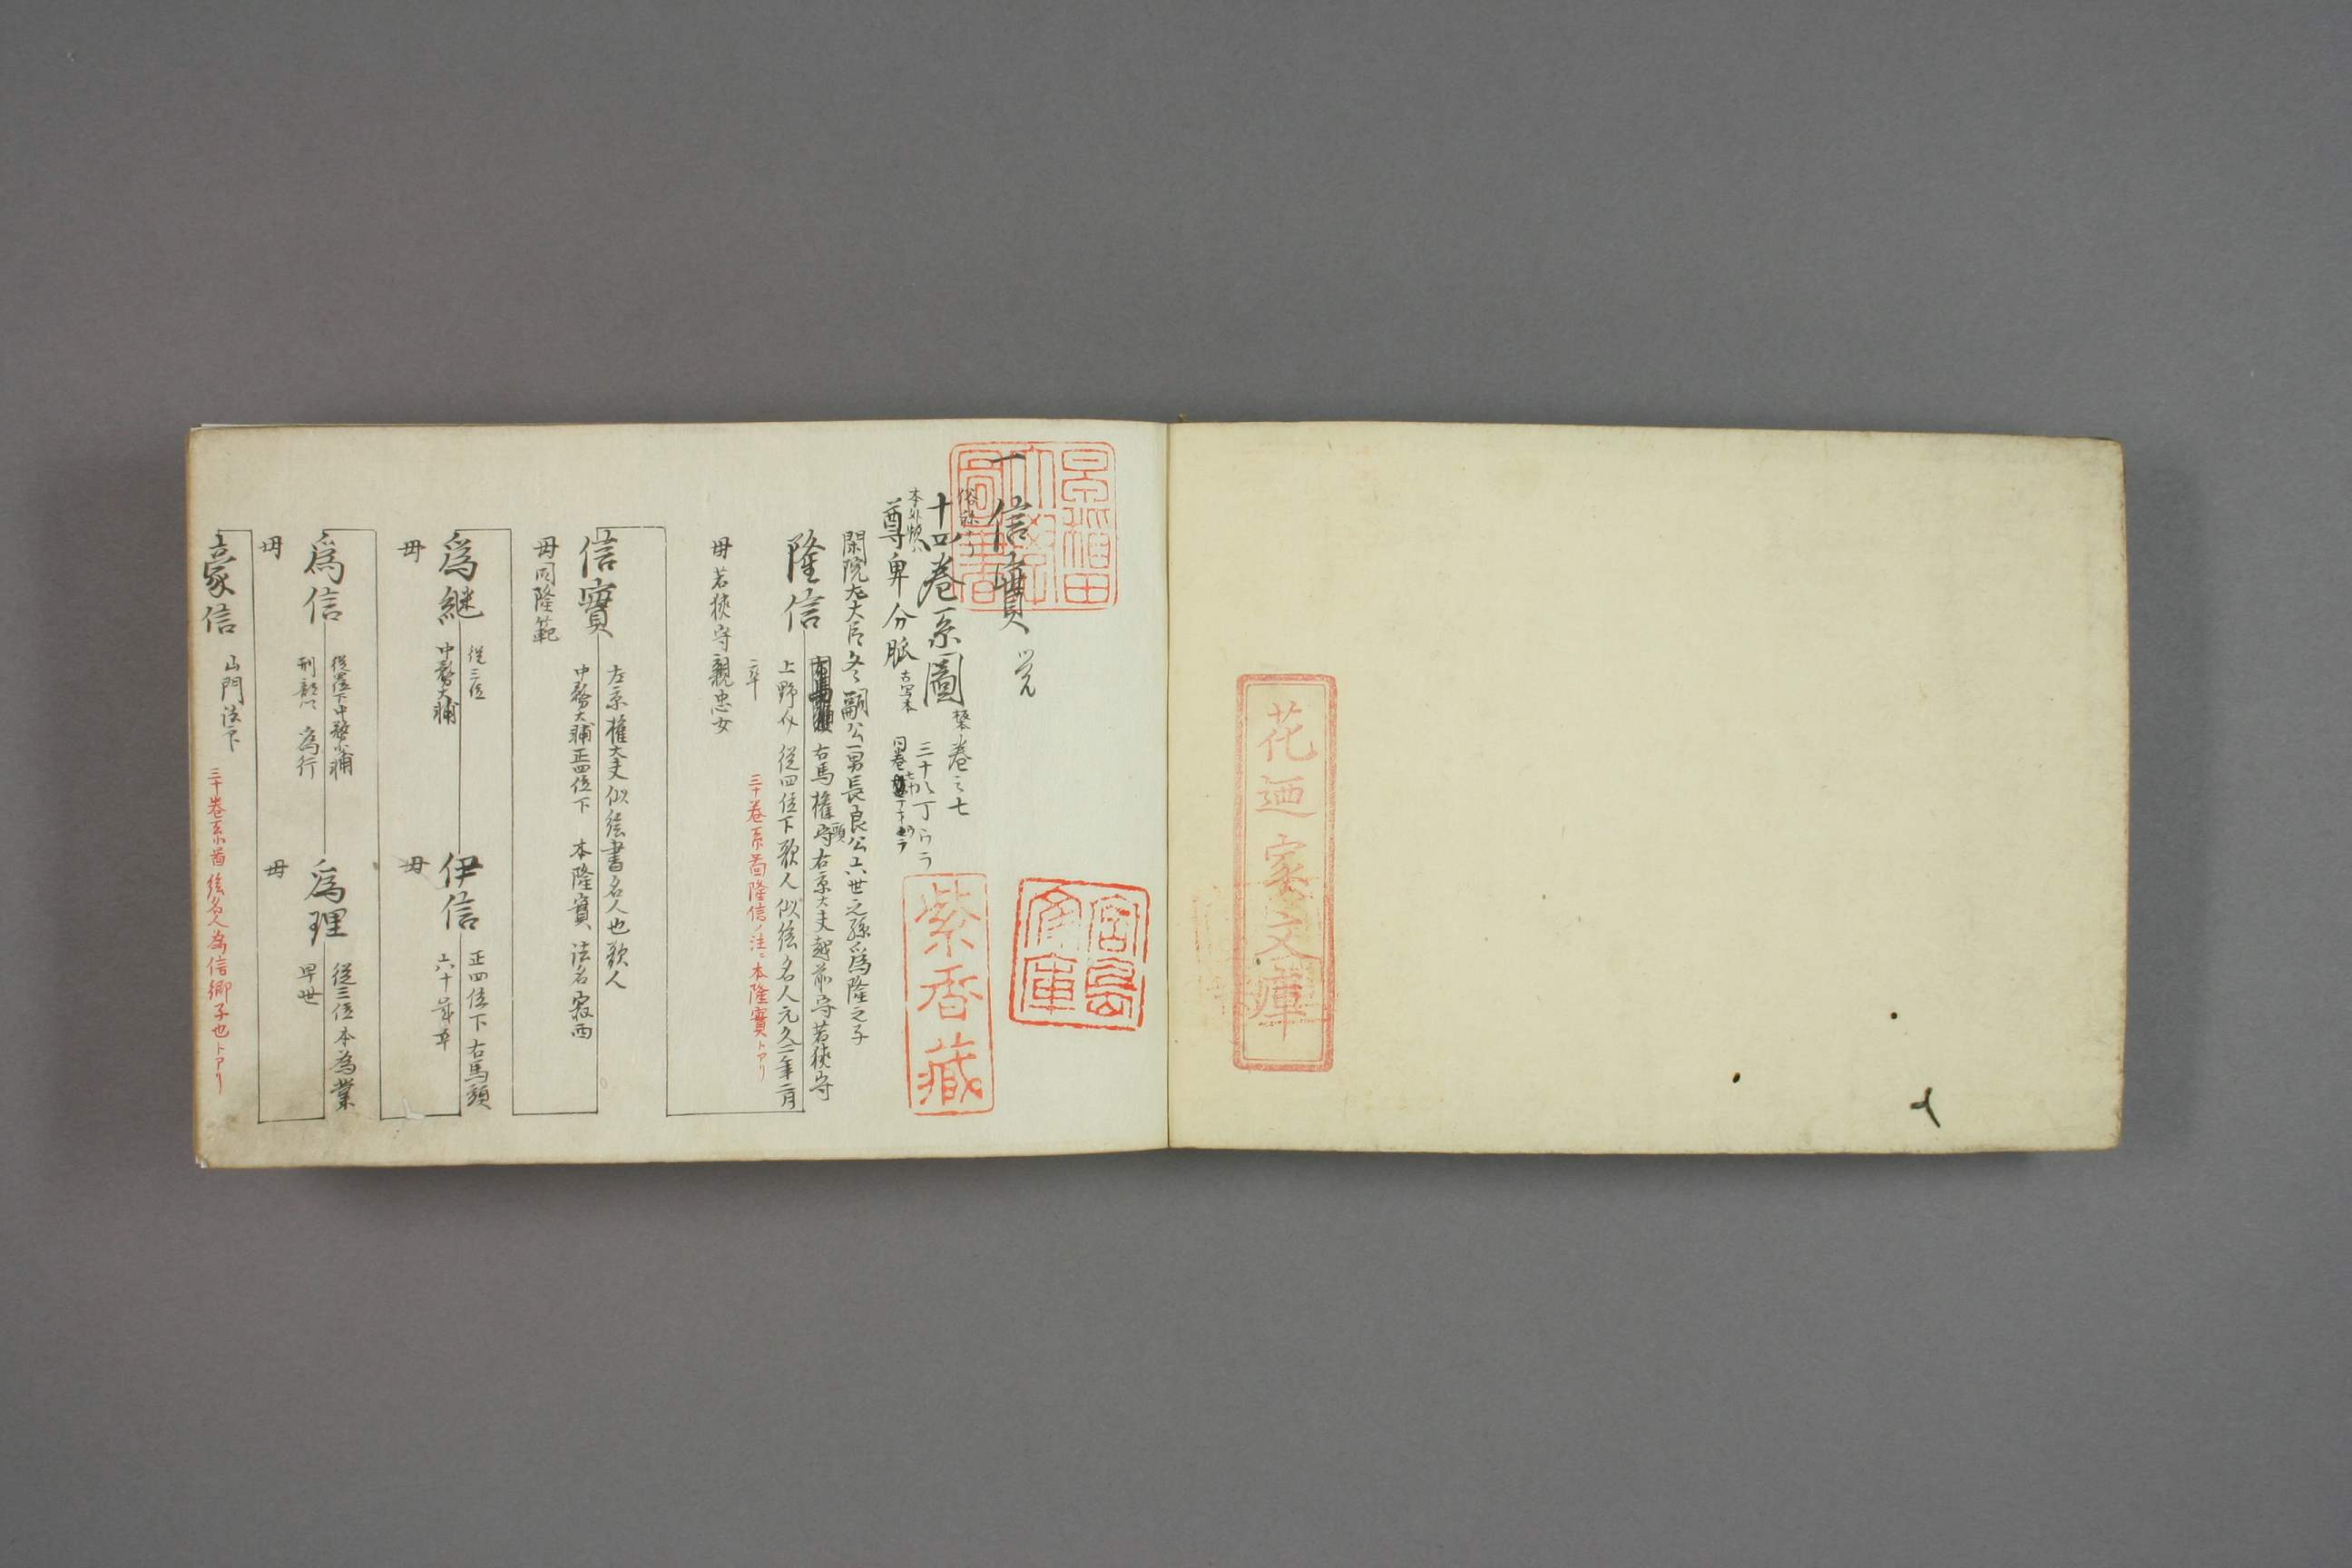 花廼家文庫
早稲田大學圖書
宮島文庫
紫香蔵
一信實
十四巻系圖
巻之七
三十八丁
尊卑分脈
古写本
閑院左大臣冬嗣公一男長良公六世之孫爲隆之子
隆信
右馬権守
頭
右京大夫越前守若狭守
上野介 従四位下歌人似絵名人元久二年二月
卒
三十巻系圖隆信ノ注ニ本隆實トアリ
母若狭守親忠女
信實
左京権大夫似絵書名人也歌人
中務大輔正四位下 本隆實 法名寂西
母同隆範
爲継
従三位
中務大輔
母
伊信
正四位下右馬頭
六十
母
爲信
刑部
為行
母
爲理
従三位本為業
早世
母
豪信
山門法下
三十巻系圖 絵名人為信卿子也トアリ